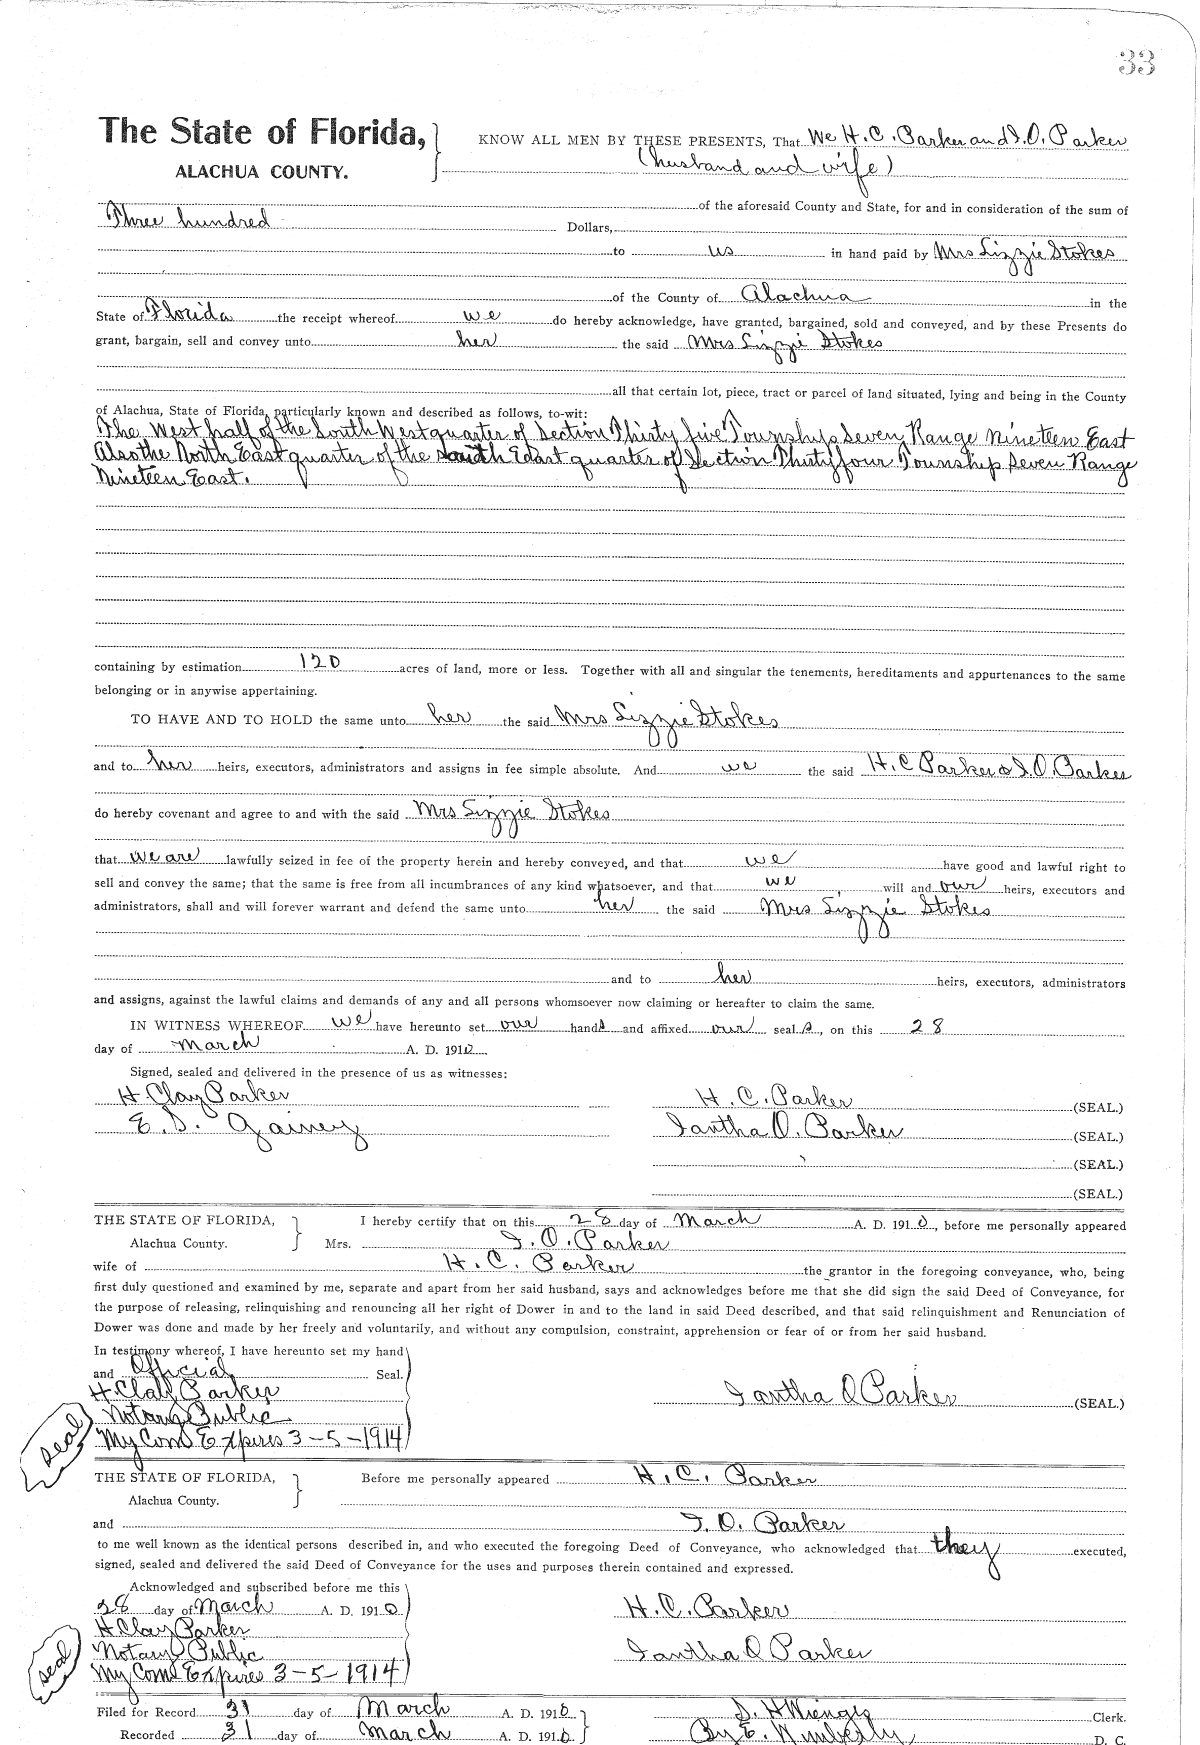 33
The State of Florida, KNOW ALL MEN BY THESE PRESENTS, That We H. C. Parker and I. O. Parker
ALACHUA COUNTY. (husband and wife)
of the aforesaid County and State, for and in consideration of the sum of
Three hundred Dollars,
to us in hand paid by Mrs Lizzie Stokes
of the County of Alachua in the
State of Florida the receipt whereof we do hereby acknowledge, have granted, bargained, sold and conveyed, and by these Presents do
grant, bargain, sell and convey unto her the said Mrs Lizzie Stokes
all that certain lot, piece, tract or parcel of land situated, lying and being in the County
of Alachua, State of Florida, particularly known and described as follows, to-wit:
The West half of the South West quarter of Section Thirty five Township Seven, Range Nineteen East
Also the North East quarter of the South East quarter of Section Thirty four Township Seven Range
Nineteen East.
containing by estimation 120 acres of land, more or less. Together with all and singular the tenements, hereditaments and appurtenances to the same
belonging or in anywise appertaining.
TO HAVE AND TO HOLD the same unto her the said Mrs Lizzie Stokes
and to her heirs, executors, administrators and assigns in fee simple absolute. And we the said H. C Parker & I. O. Parker
do hereby covenant and agree to and with the said Mrs Lizzie Stokes
that we are lawfully seized in fee of the property herein and hereby conveyed, and that we have good and lawful right to
sell and convey the same; that the same is free from all incumbrances of any kind whatsoever, and that we will and our heirs, executors and
administrators, shall and will forever warrant and defend the same unto her the said Mrs Lizzie Stokes
and to her heirs, executors, administrators
and assigns, against the lawful claims and demands of any and all persons whomsoever now claiming or hereafter to claim the same.
IN WITNESS WHEREOF we have hereunto set our hands and affixed our seals, on this 28
day of March A. D. 1910
Signed, sealed and delivered in the presence of us as witnesses:
H. Clay Parker H. C. Parker (SEAL.)
E. S. Gainey Iantha O. Parker (SEAL.)
(SEAL.)
(SEAL.)
THE STATE OF FLORIDA, I hereby certify that on this 28 day of March A. D. 1910, before me personally appeared
Alachua County. Mrs. I. O. Parker
wife of H. C. Parker the grantor in the foregoing conveyance, who, being
first duly questioned and examined by me, separate and apart from her said husband, says and acknowledges before me that she did sign the said Deed of Conveyance, for
the purpose of releasing, relinquishing and renouncing all her right of Dower in and to the land in said Deed described, and that said relinquishment and Renunciation of
Dower was done and made by her freely and voluntarily, and without any compulsion, constraint, apprehension or fear of or from her said husband.
In testimony whereof, I have hereunto set my hand
and Official Seal.
H. Clay Parker Iantha O Parker (SEAL.)
Notary Public
seal My Com Expires 3-5-1914
THE STATE OF FLORIDA, Before me personally appeared H. C. Parker
Alachua County.
and I. O. Parker
to me well known as the identical persons described in, and who executed the foregoing Deed of Conveyance, who acknowledged that they executed,
signed, sealed and delivered the said Deed of Conveyance for the uses and purposes therein contained and expressed.
Acknowledged and subscribed before me this
28 day of March A. D. 1910 H. C. Parker
H Clay Parker
seal Notary Public Iantha O Parker
My Com Expires 3-5-1914
Filed for Record 31 day of March A. D. 1910 S. H Wienges Clerk.
Recorded 31 day of March A. D. 1910 By E. Wimberly D. C.